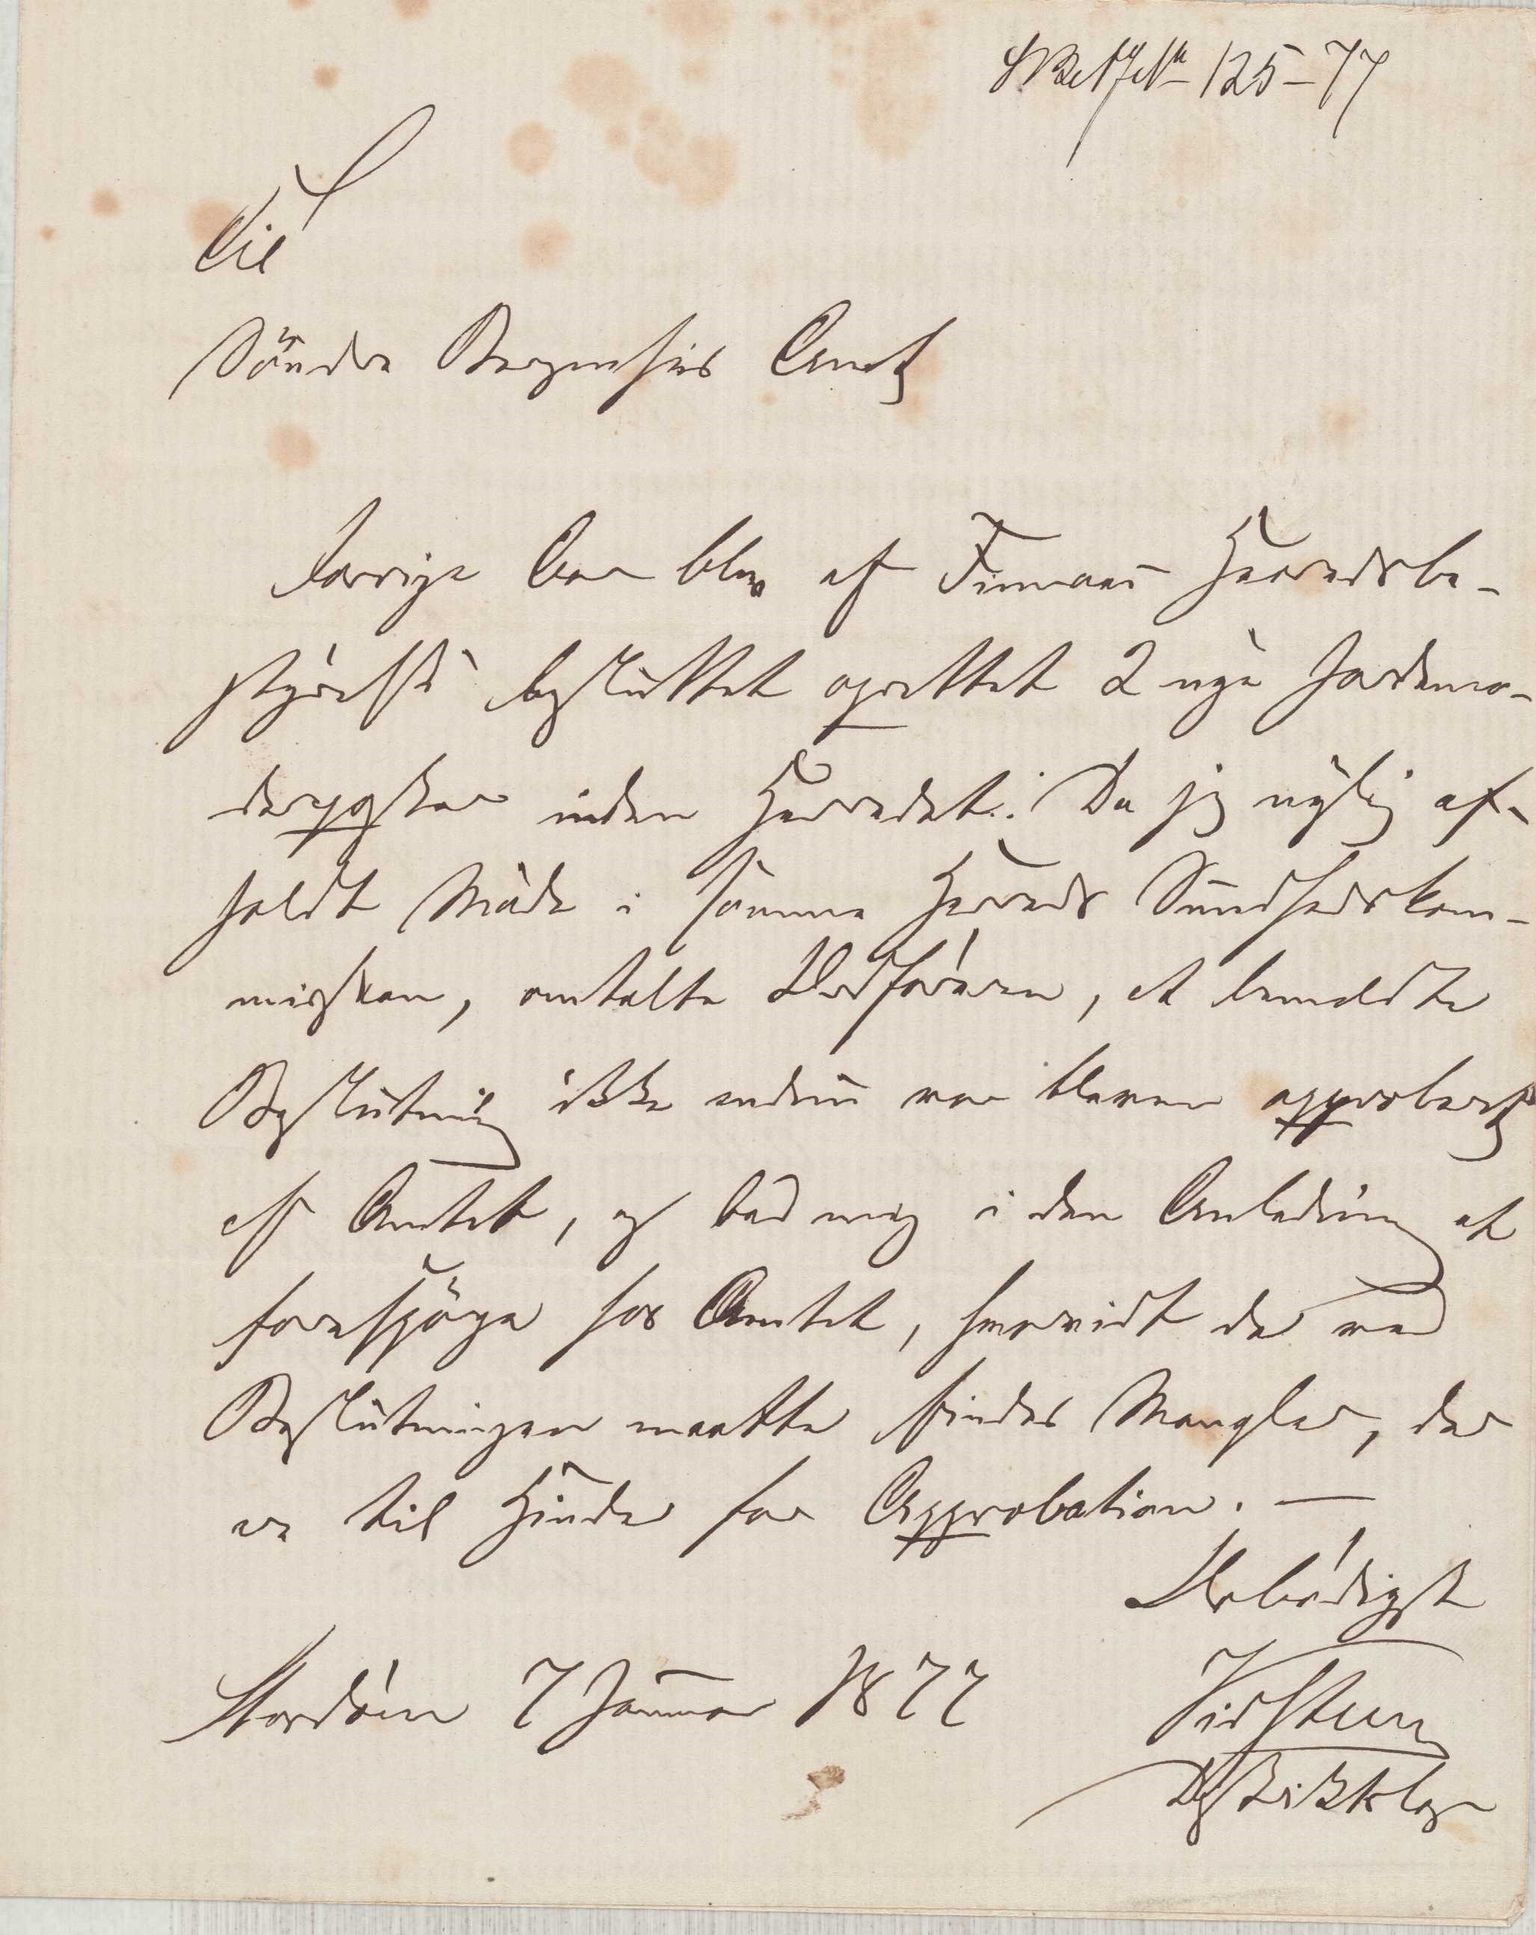 125-77
Til
Söndre Bergenhus Amt
Forrige Aar blev af Finnaas Herredsbe-
styrelse besluttet oprettet 2 nye Jordemo-
derposter inden Herredet. Da jeg nylig af-
holdt Möde i samme Herreds Sundhedskom-
mission, omtalte Ordföreren, at bemeldte
Beslutning ikke endnu var bleven approberet
af Amtet, og bad mig i den Anledning at
forespörge hos Amtet, hvorvidt der ved
Beslutningen maatte findes Mangler, der
er til Hinder for Approbation. —
Ærbödigst
Stordöen 7 Januar 1877
Distriktslæge